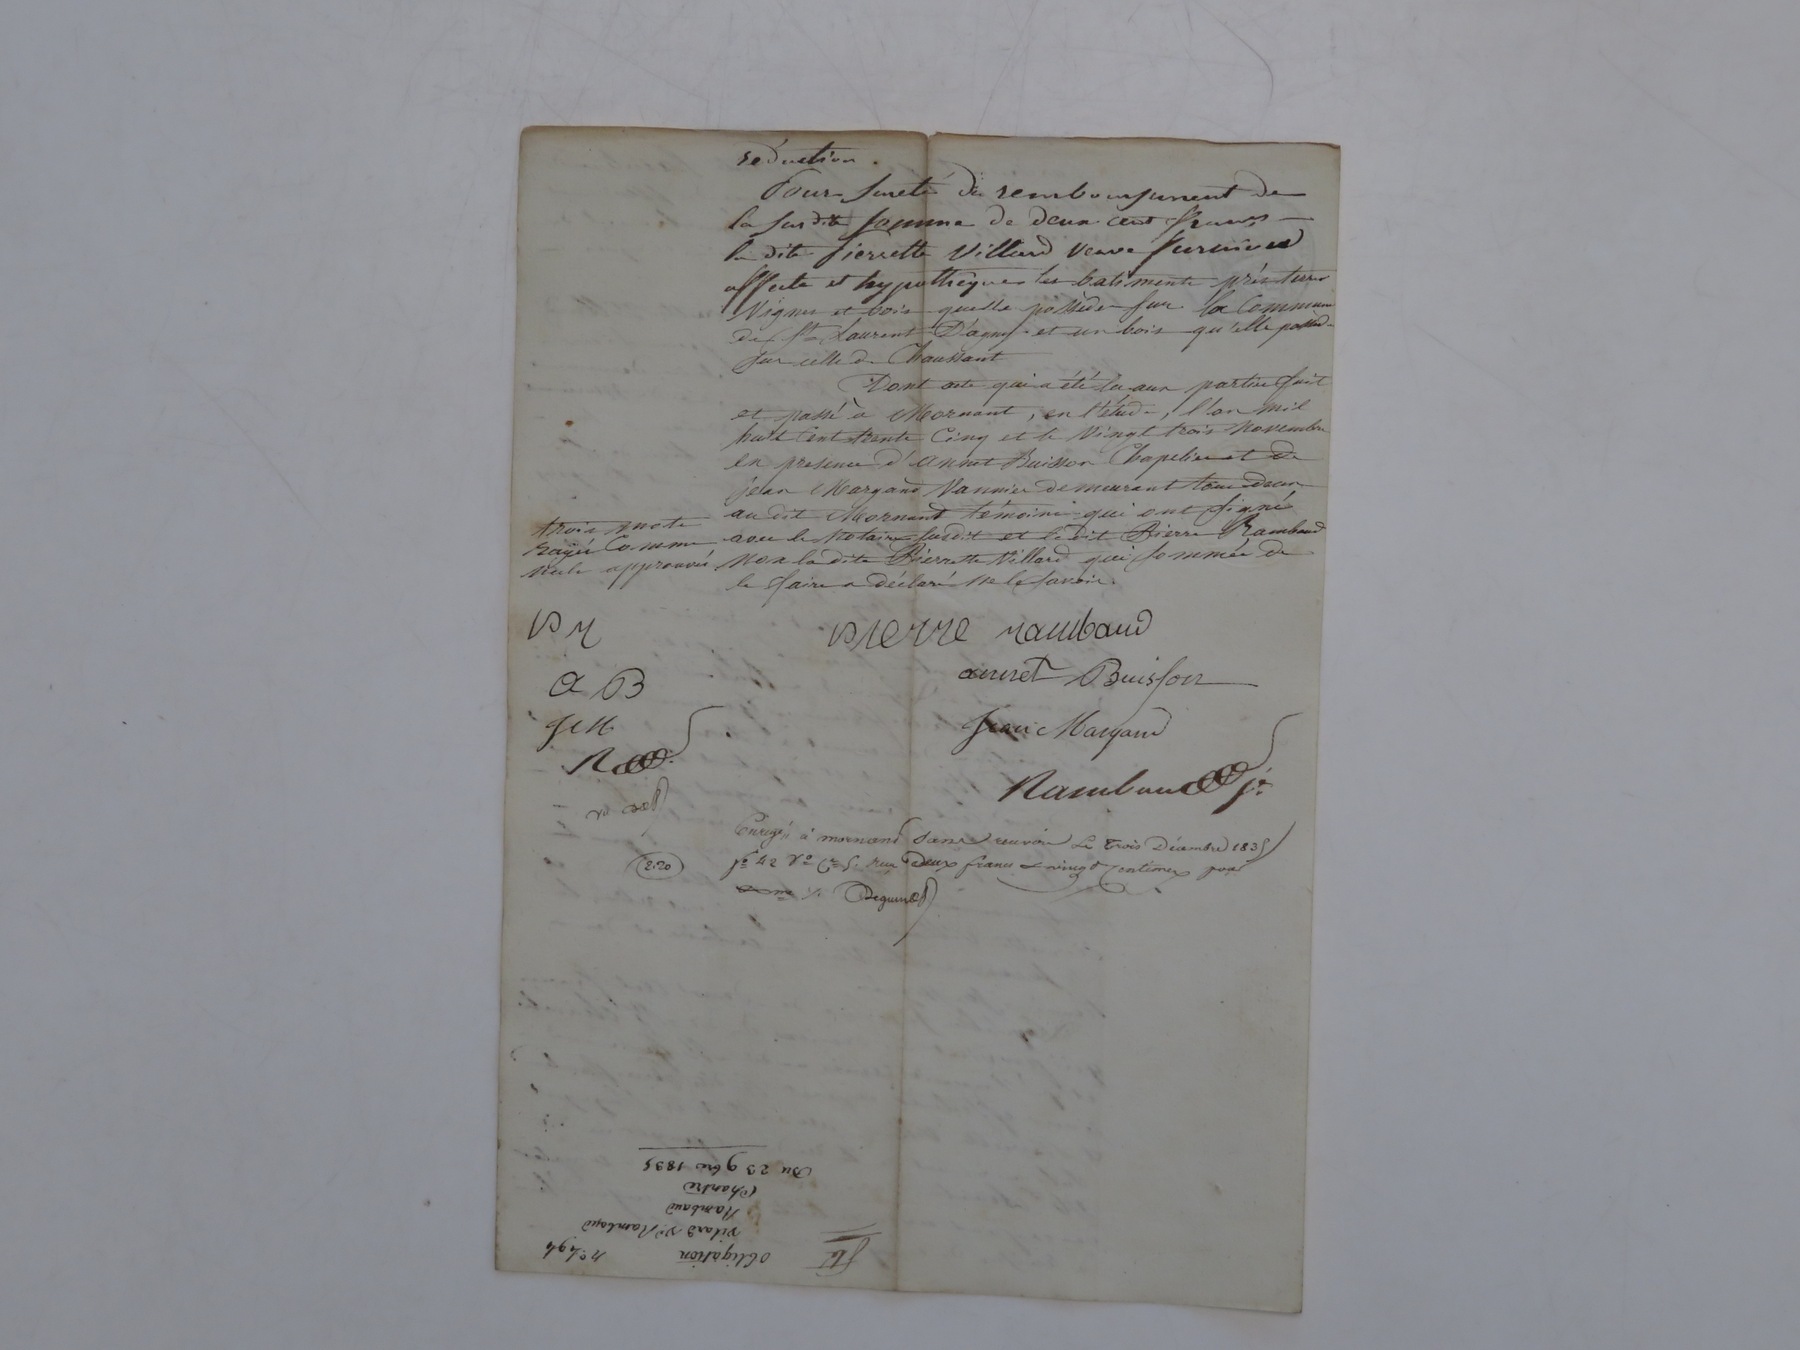 réduction.
Pour sureté du remboursement de
la susdite somme de deux cent francs
la dite pierrette Villard veuve
affecte et hypothèque les batiments prés terres
Vignes et bois quelle possède sur la Commune
de St Laurent D'agny et un bois qu'elle possede
sur celle de Chaussant
Dont acte qui a été lu aux parties fait
et passé à Mornant, en l'étude, l'an mil
huit Cent trente Cinq et le Vingt trois Novembre
en presence d'annet Buisson Chapelier et de
jean Margand Vannier demeurant tous deux
au dit Mornant témoins qui ont signé
avec le Notaire susdit et le dit Pierre Rambaud
non la dite Pierrette Villard qui sommée de
le faire a déclaré ne le savoir.
trois mots
rayés Comme
nuls approuvés
P r
pierre rambaud
a B
annet Buisson
J M
Jean Margand
R
Rambaud
Enregé à mornant sans renvoi Le Trois Décembre 1835
fo 42 Vo Ce 5. reçu deux francs & vingt Centimes pour
2.20
Du 23 9bre 1835
Chantre
Rambaud
Vilard Ve Rambaud
obligation